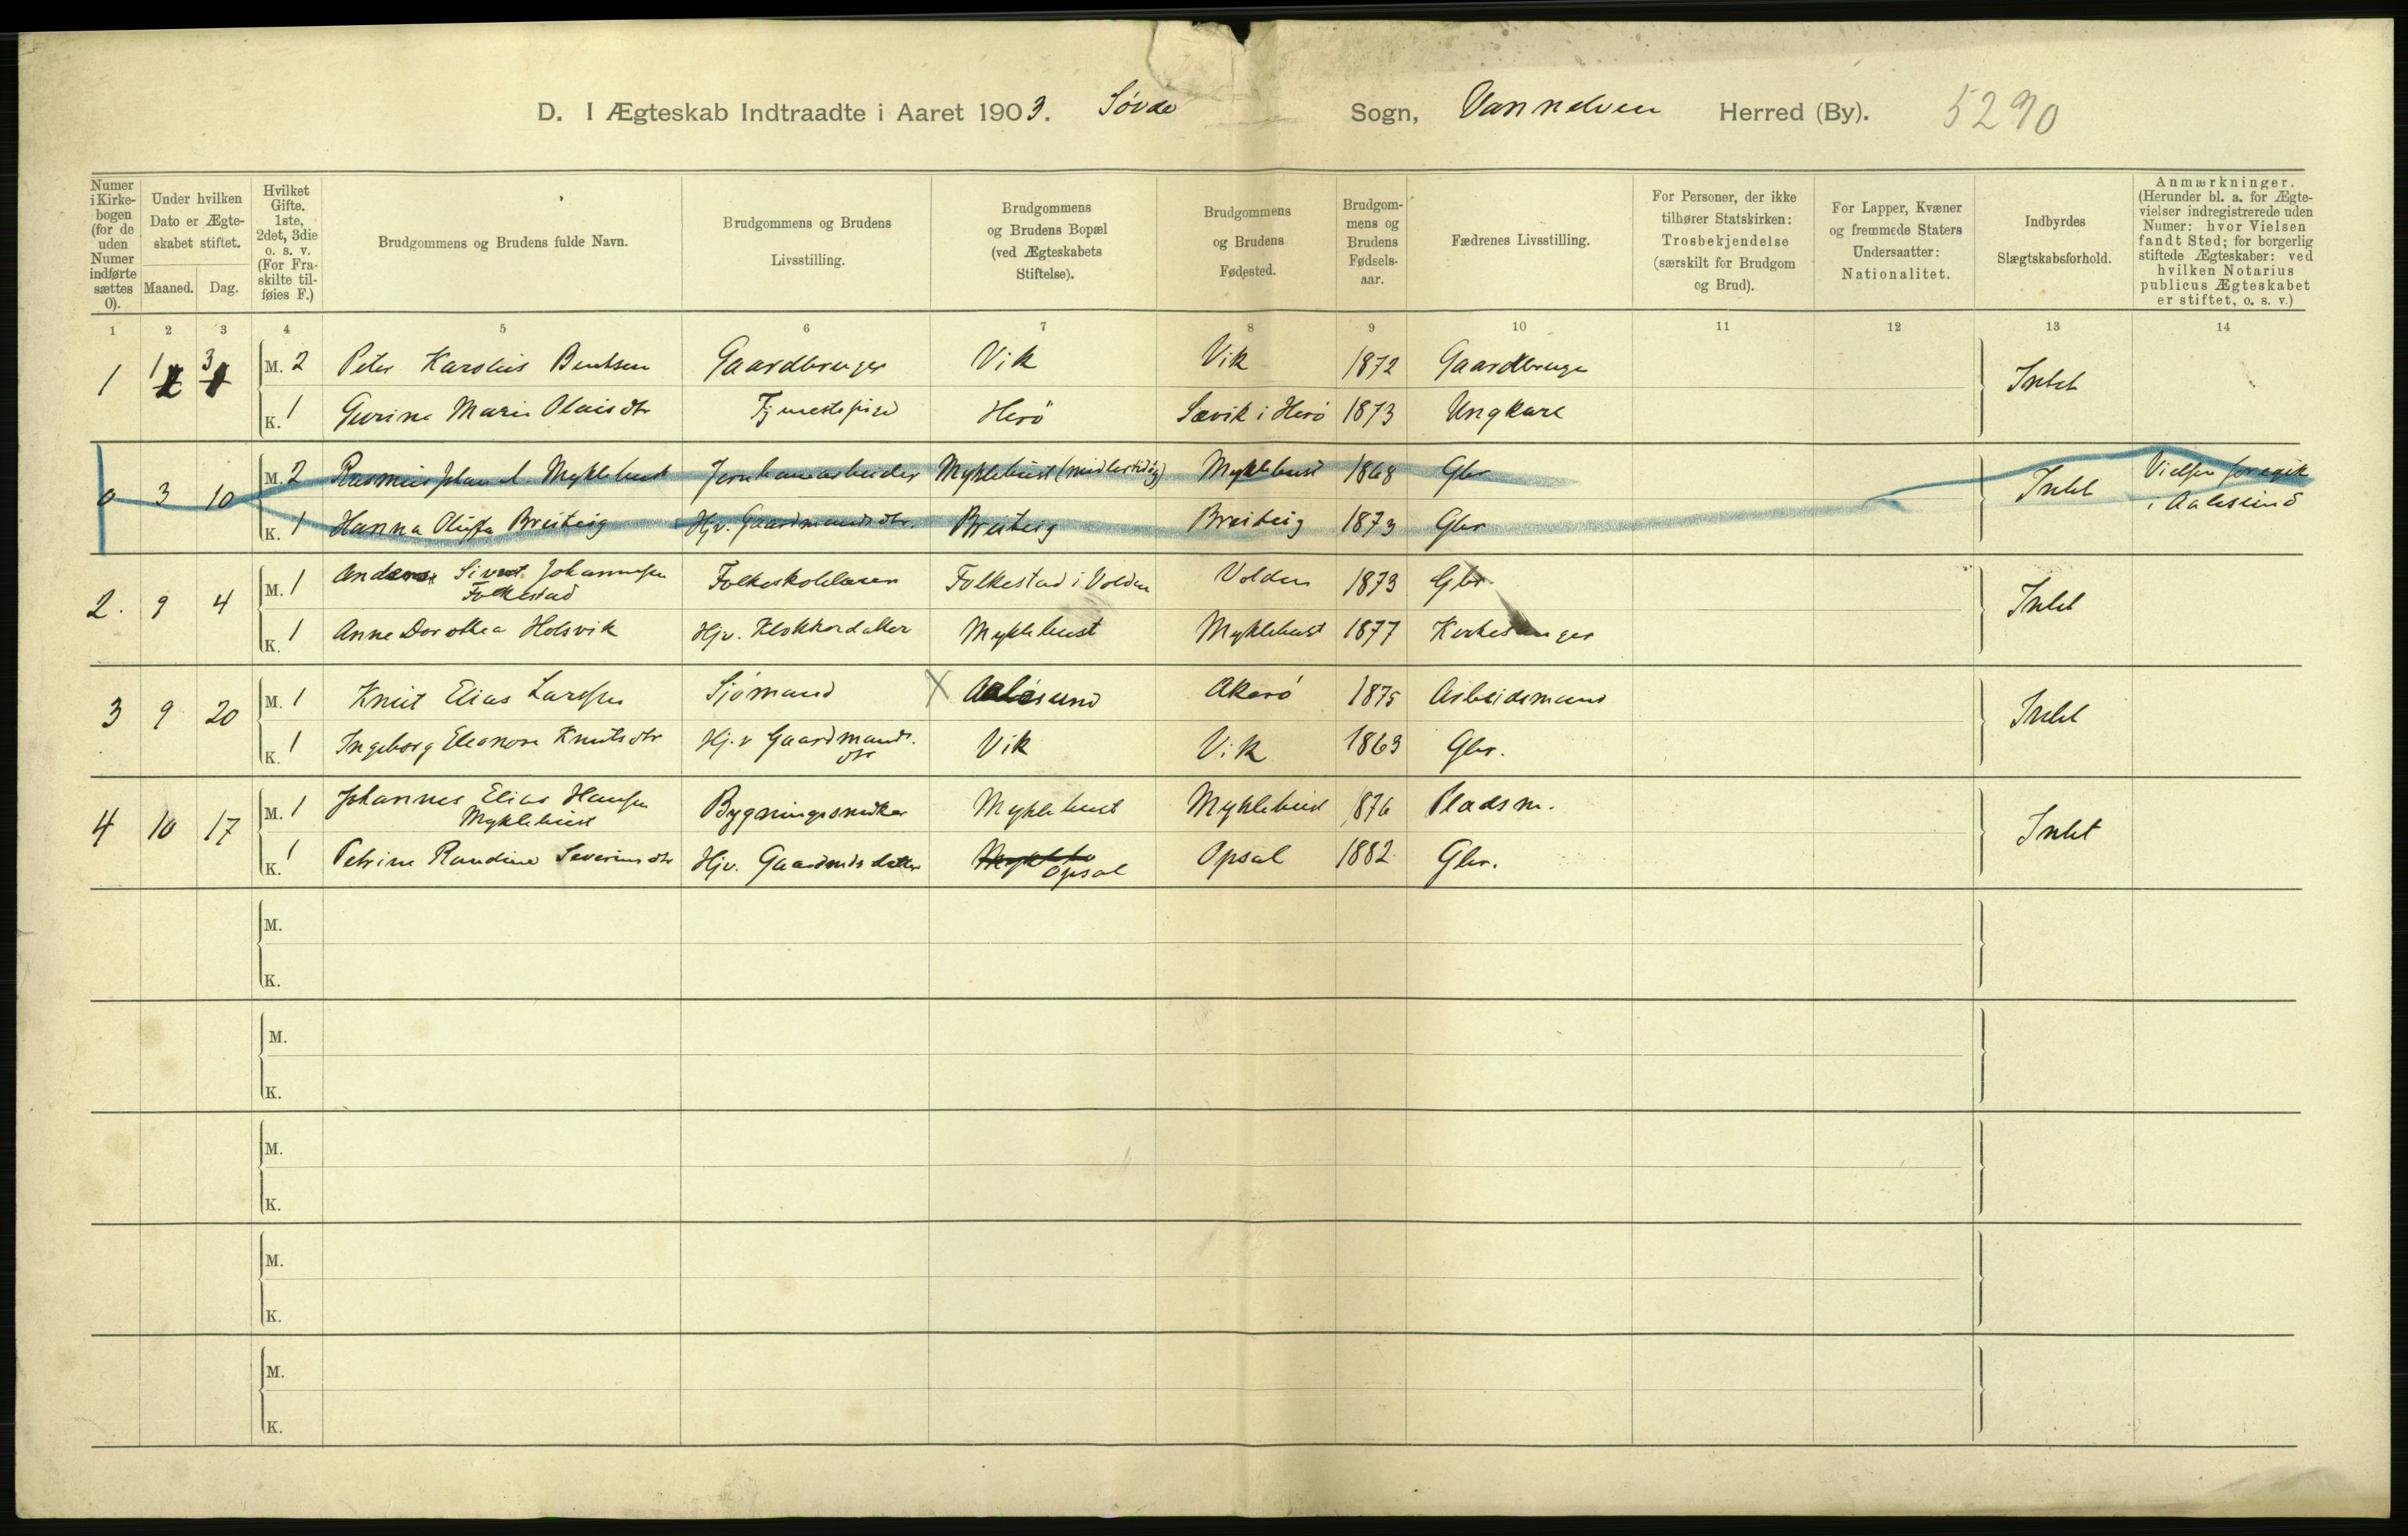 D. I Ægteskab Indtraadte i Aaret 1903. Søvde Sogn, Vannelven Herred (By). 5290
Numer i Kirkebogen (for de uden Numer indførte sættes 0).
Under hvilken Dato er Ægteskabet stiftet.
Maaned. Dag.
Hvilket Gifte. 1ste, 2det, 3die o. s. v. (For Fraskilte tilføies F.)
Brudgommens og Brudens fulde Navn.
Brudgommens og Brudens Livsstilling.
Brudgommens og Brudens Bopæl (ved Ægteskabets Stiftelse).
Brudgommens og Brudens Fødested.
Brudgommens og Brudens Fødselsaar.
Fædrenes Livsstilling.
For Personer, der ikke tilhører Statskirken: Trosbekjendelse (særskilt for Brudgom og Brud).
For Lapper, Kvæner og fremmede Staters Undersaatter: Nationalitet.
Indbyrdes Slægtskabsforhold.
Anmærkninger. (Herunder bl. a. for Ægtevielser indregistrerede uden Numer: hvor Vielsen fandt Sted; for borgerlig stiftede Ægteskaber: ved hvilken Notarius publicus Ægteskabet er stiftet, o. s. v.)
1 2 3 4 5 6 7 8 9 10 11 12 13 14
1 1 3 M. 2 Peter Karolius Bentsen Gaardbruger Vik Vik 1872 Gaardbruger Intet
K. 1 Gurine Marie Olaisdtr Tjenestepige Herö Sævik i Herö 1873 Ungkarl
0 3 10 M. 2 Rasmus Johan A. Myklebust Jernbanearbeider Myklebust (midlertidig) Myklebust 1868 Gbr Intet Vielsen foregik
K. 1 Hanna Oluffa Breiteig Hjv. Gaardmandsdtr. Breiteig Breiteig 1873 Gbr i Aalesund
2. 9 4 M. 1 Anders Sivert Johannessen
Folkestad Folkeskolelærer Folkestad i Volden Volden 1873 Gbr. Intet
K. 1 Anne Dorothea Holsvik Hjv. Klokkerdatter Myklebust Myklebust 1877 Kirkesanger
3 9 20 M. 1 Knut Elias Larssen Sjömand X Aalesund Akerö 1875 Arbeidsmand Intet
K. 1 Ingeborg Eleanora Knutsdtr Hj. v Gaardmands.
dtr Vik Vik 1869 Gbr.
4 10 17 M. 1 Johannes Elias Hansen
Myklebust Bygningssnedker Myklebust Myklebust 1876 Pladsm. Intet
K. 1 Petrine Randine Severinsdtr Hjv. Gaardmdsdatter Opsal Opsal 1882 Gbr.
M.
K.
M.
K.
M.
K.
M.
K.
M.
K.